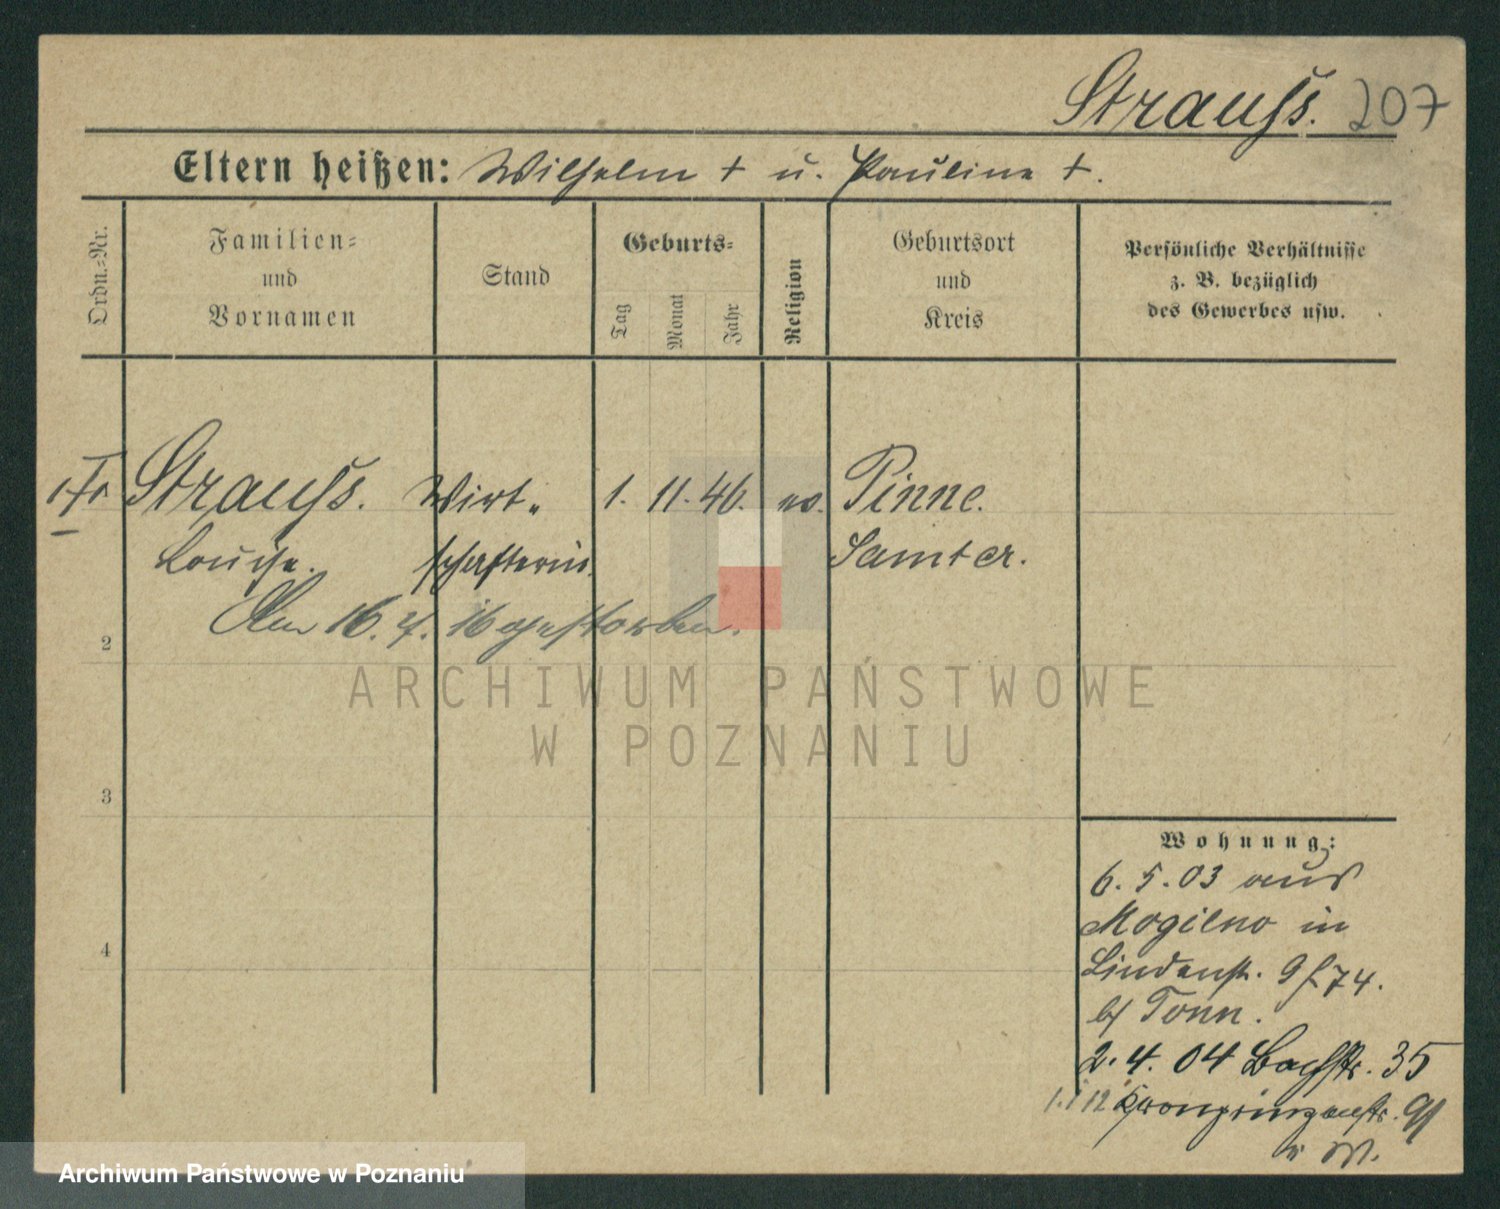 Strauss. 207
Eltern heißen: Wilhelm † u. Pauline †.
Ordn.-Nr.
Familien-
und
Vornamen
Stand
Geburts-
Tag
Monat
Jahr
Religion
Geburtsort
und
Kreis
Persönliche Verhältnisse
z. B. bezüglich
des Gewerbes usw.
Strauss. Wirt- 1. 11. 46. ev. Pinne.
Louise. schafterin. Samter.
Am 16. 7. 16 gestorben.
2
3
4
ARCHIWUM PAŃSTWOWE
W POZNANIU
Wohnung:
6. 5. 03 aus
Mogilno in
Lindenstr. 9 74.
b/ Tonn.
2. 4. 04 Bachstr. 35
1. 1 12 Kronprinzenstr. 91
Archiwum Państwowe w Poznaniu